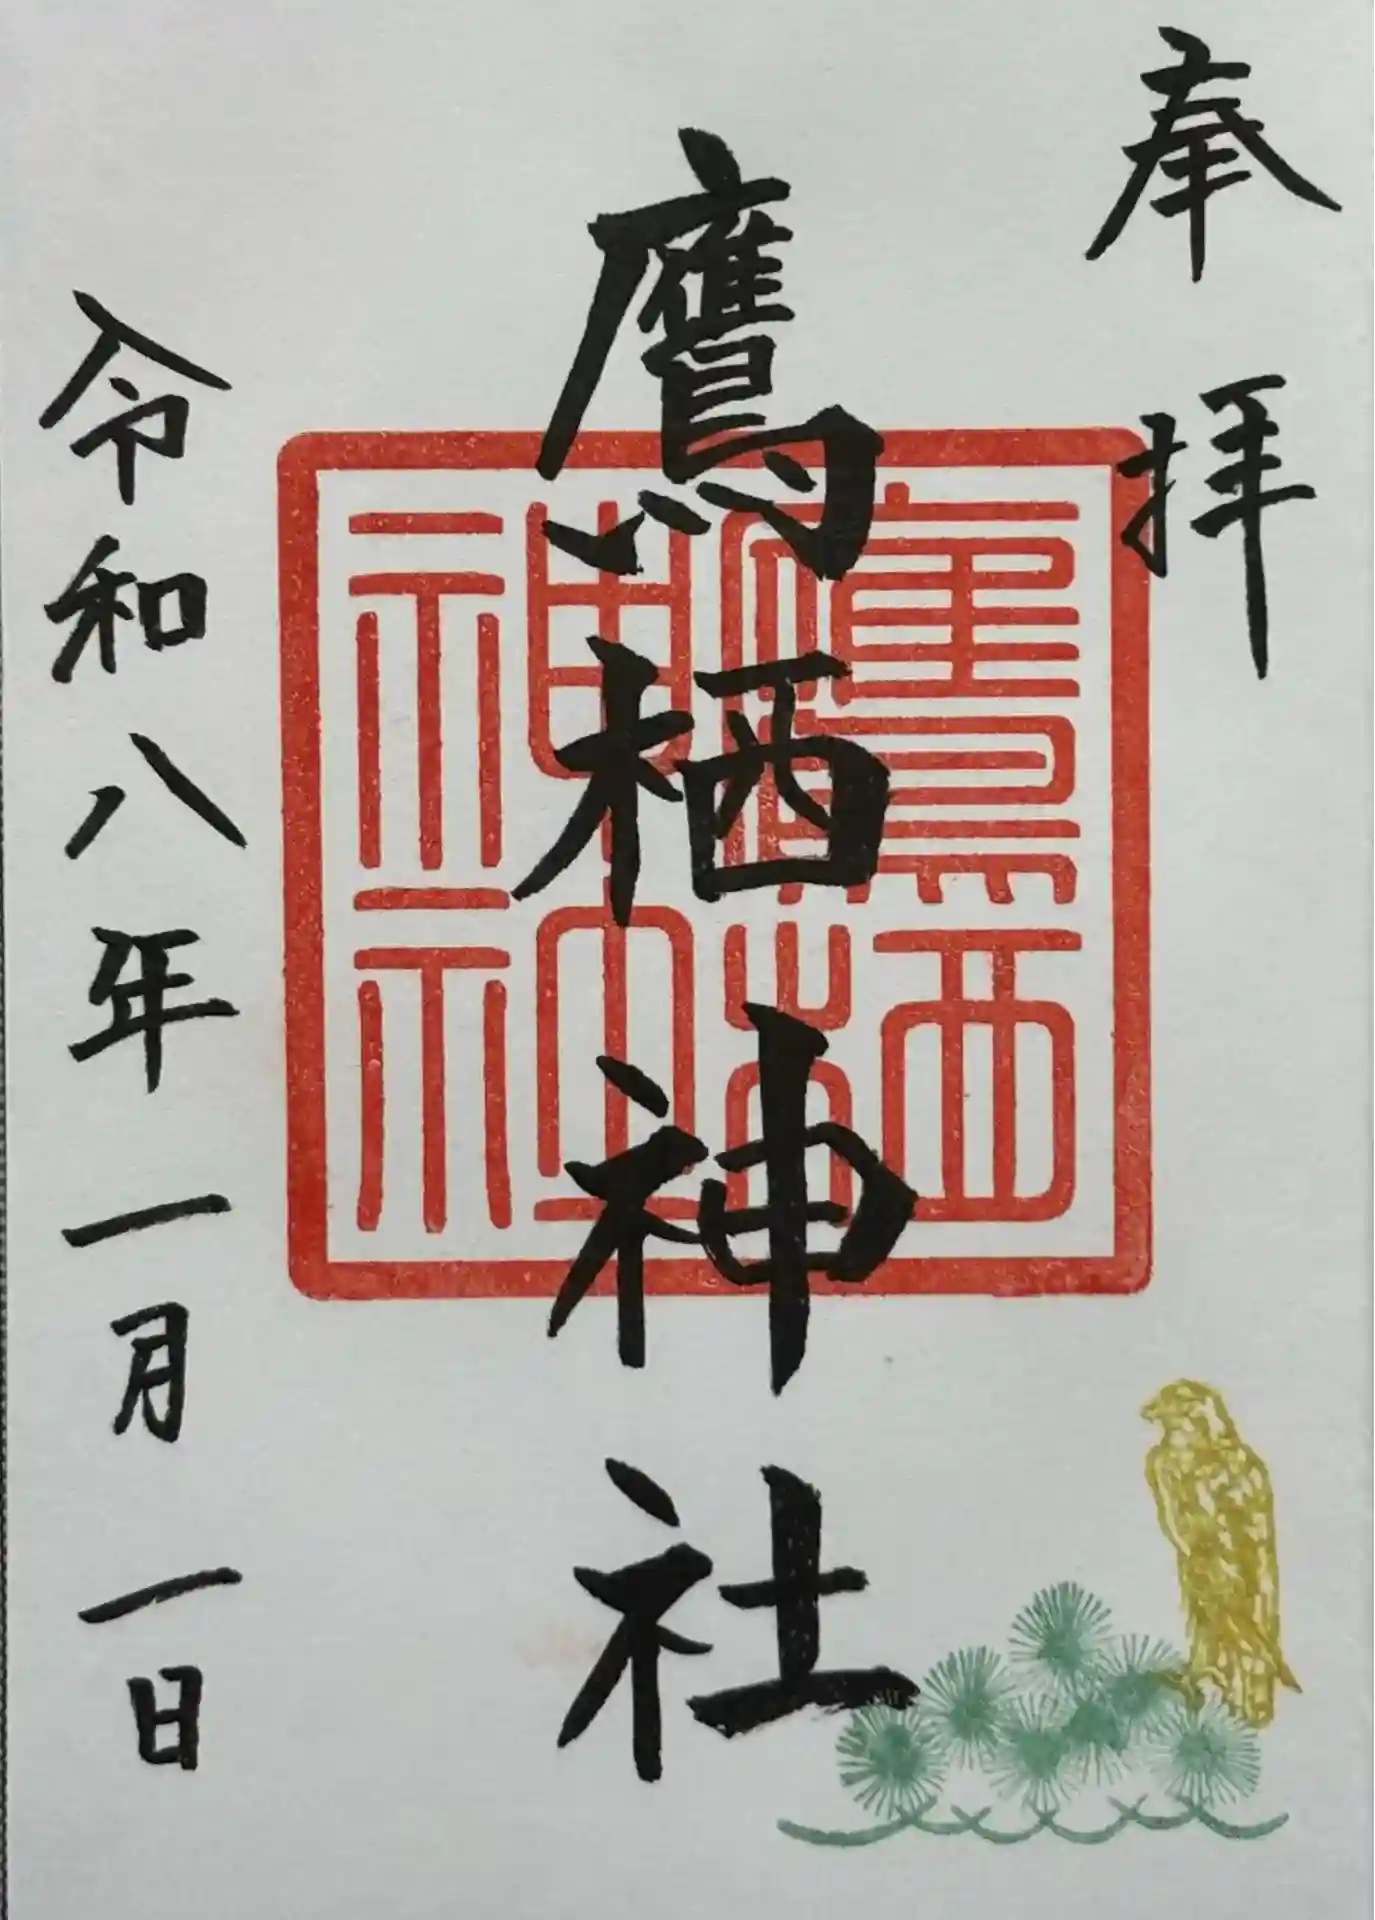 奉拝
鷹栖神社
鷹栖
神社
令和八年一月一日